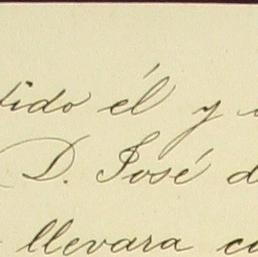 tido él y
D. José d
llevara co